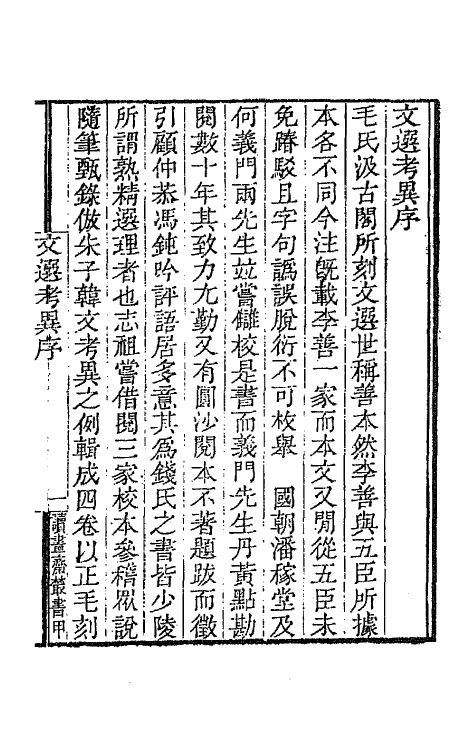 文選考異序
毛氏汲古閣所刻文選世稱善本然李善與五臣所據
本各不同今注旣載李善一家而本文又閒從五臣未
免踳駁且字句譌誤脫衍不可枚舉　國朝潘稼堂及
何義門兩先生竝嘗讎校是書而義門先生丹黃點勘
閱數十年其致力尤勤又有圓沙閱本不著題跋而徵
引顧仲恭馮鈍吟評語居多意其爲錢氏之書皆少陵
所謂熟精選理者也志祖嘗借閱三家校本參稽眾說
隨筆甄錄倣朱子韓文考異之例輯成四卷以正毛刻
文選考異序
一
讀畫齋叢書甲